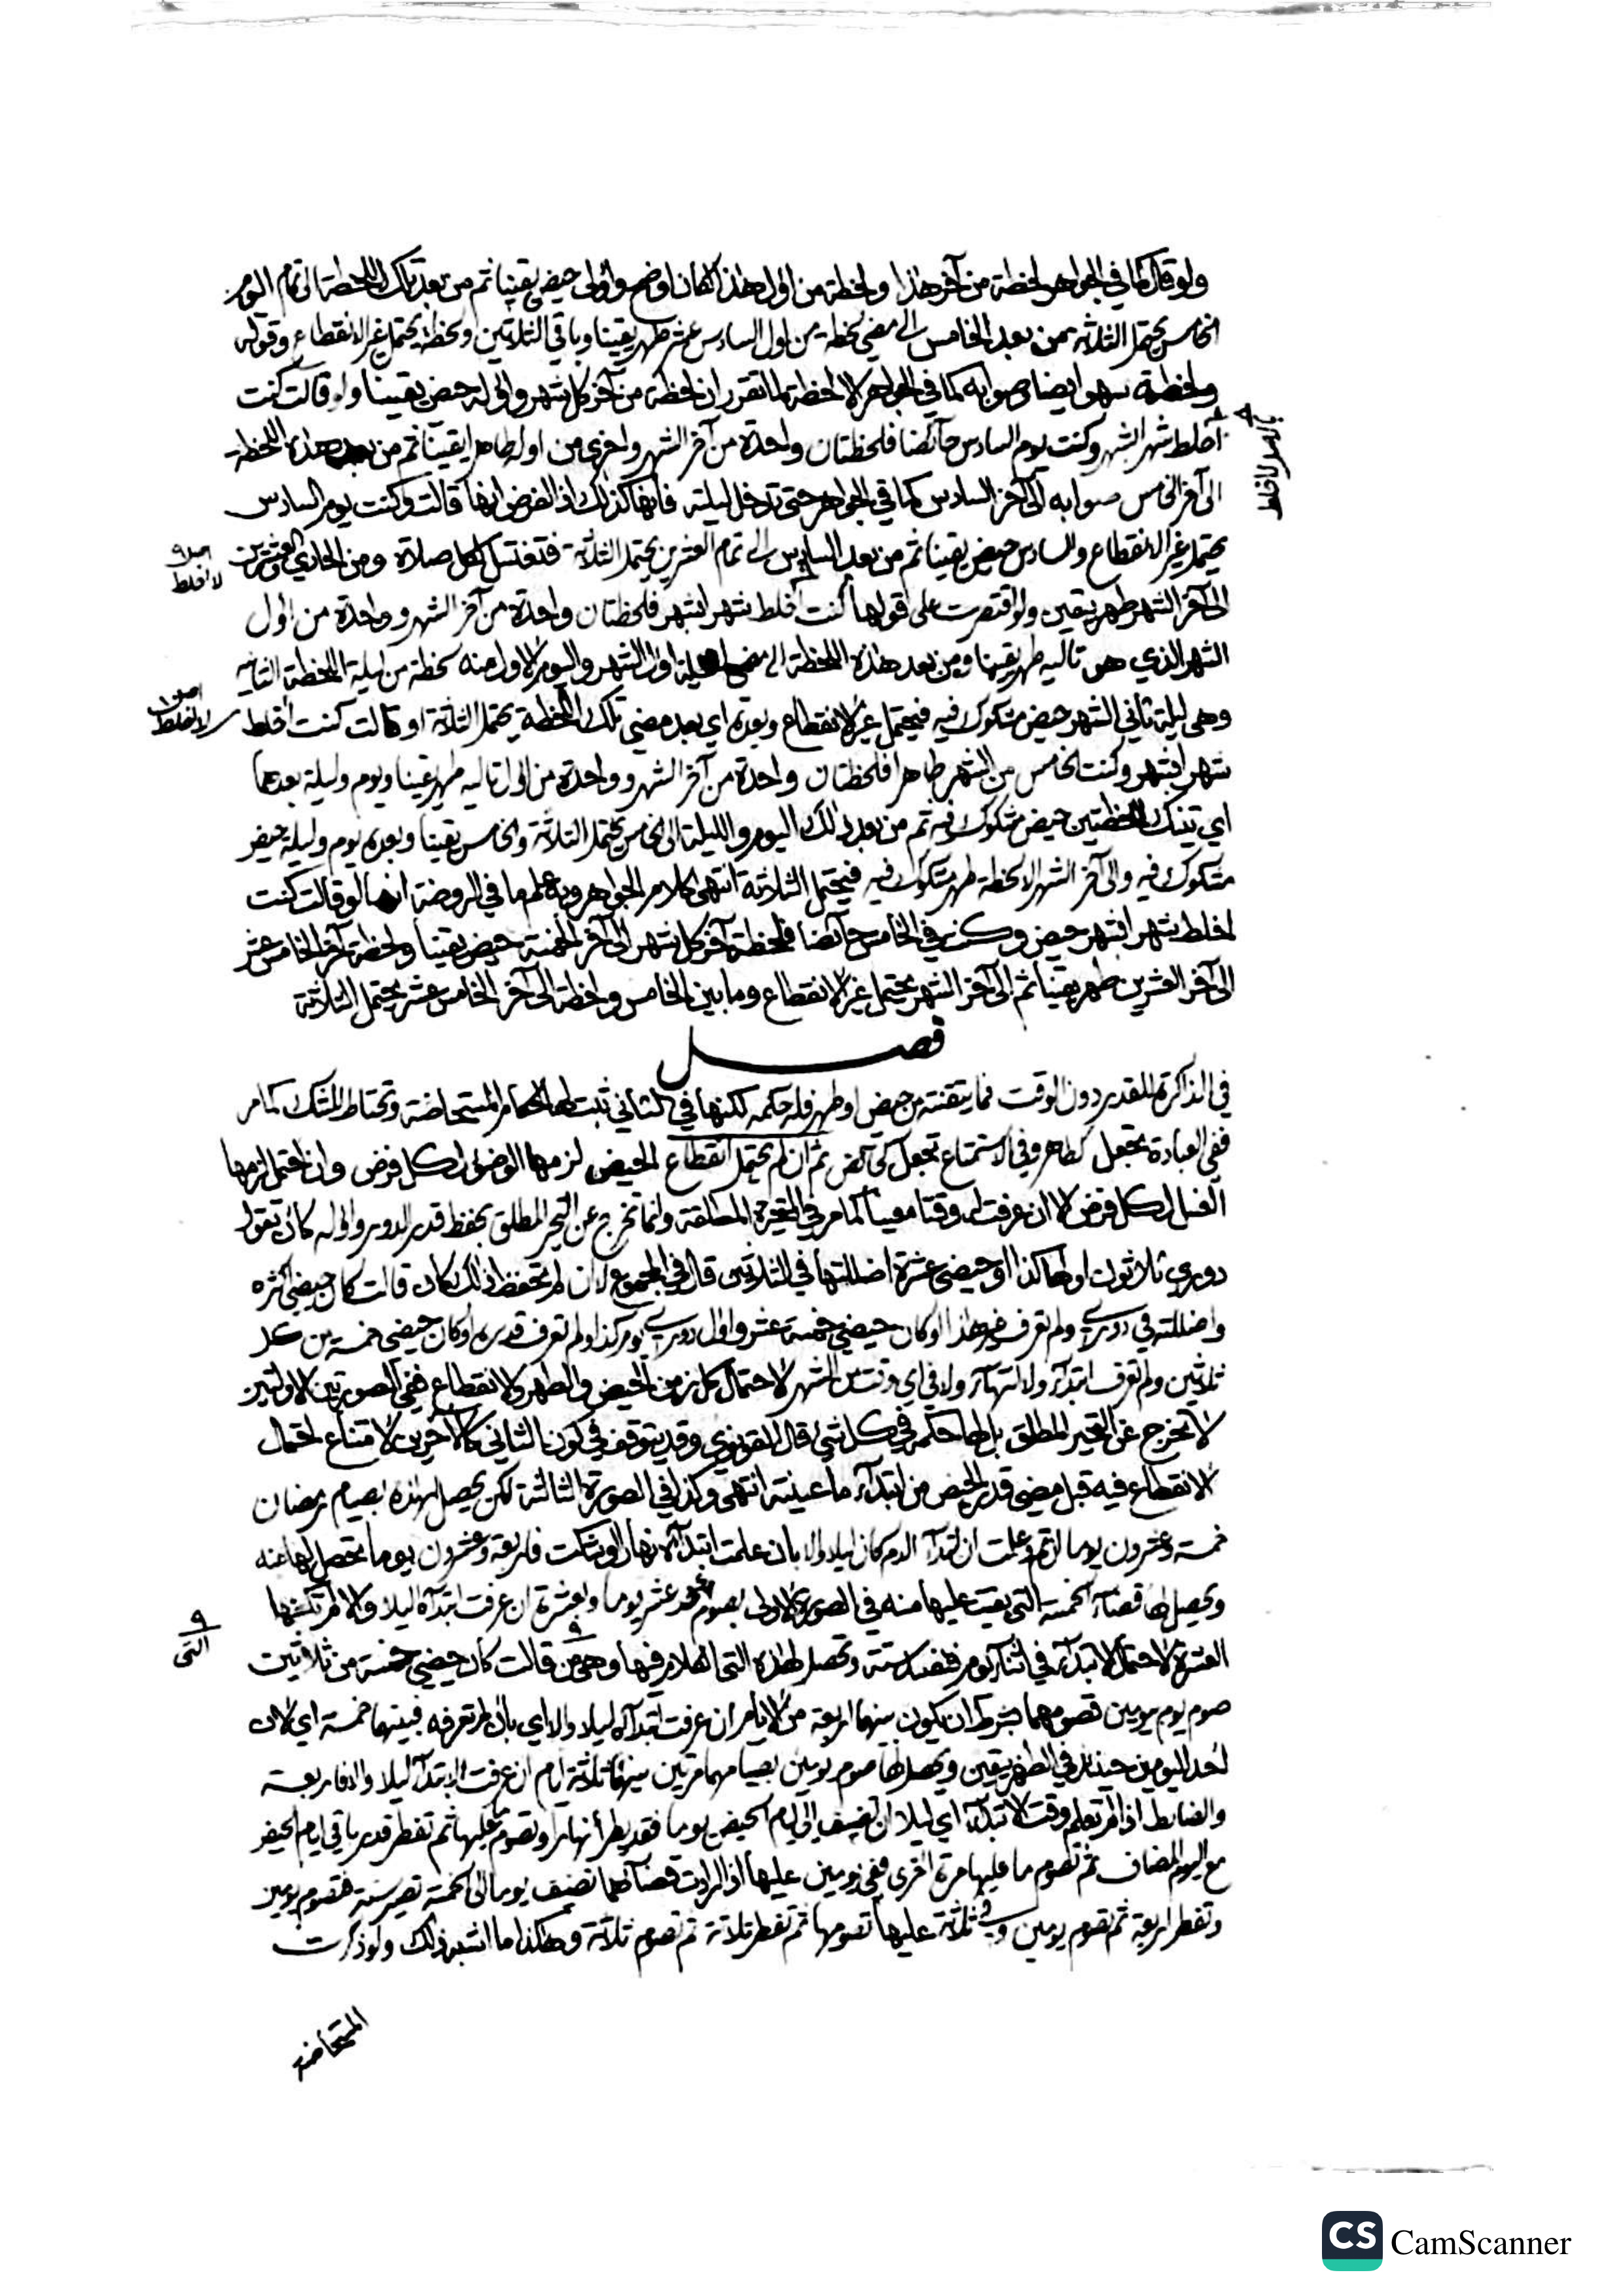 ولو قال كما في الجواهر لحظة من آخر هذا ولحظة من اول هذا لكان اوضح واولى حيض يقينا ثم من بعد تلك اللحظة الى تمام اليوم
الخامس يحتمل الثلاثة ومن بعد الخامس الى مضي لحظة من اول السادس عشر طهر يقينا وباقي الثلاثين ولحظة يحتمل غير الانقطاع وقوله
ولحظة سهو ايضا صوابه كما في الجواهر الا لحظة لما تقرر ان لحظة من آخر كل شهر واوله حيض يقينا ولو قالت كنت
أخلط شهرا بشهر وكنت يوم السادس حائضا فلحظتان واحدة من آخر الشهر واخرى من اوله طاهر يقينا ثم من بعد هذه اللحظة
الى آخر الخامس صوابه الى آخر السادس كما في الجواهر حتى تدخل ليلته فانها كذلك اذ الفرض انها قالت وكنت يوم السادس
يحتمل غير الانقطاع والسادس حيض يقينا ثم من بعد السادس الى تمام العشرين يحتمل الثلاثة فتغتسل لكل صلاة ومن الحادي والعشرين
الى آخر الشهر طهر بيقين ولو اقتصرت على قولها كنت أخلط شهرا بشهر فلحظتان واحدة من آخر الشهر وواحدة من اول
الشهر الذي هو تاليه طهر يقينا ومن بعد هذه اللحظة الى مضي ليلة اول الشهر واليوم الاول منه لحظة من ليلة اللحظة الثانية
وهي ليلة ثاني الشهر حيض مشكوك فيه فيحتمل غير الانقطاع وبعده اي بعد مضي تلك اللحظة يحتمل الثلاثة او قالت كنت أخلط
شهرا بشهر وكنت الخامس من الشهر طاهرا فلحظتان واحدة من آخر الشهر وواحدة من اول تاليه طهر يقينا ويوم وليلة بعدهما
اي تينك اللحظتين حيض مشكوك فيه ثم من بعد ذلك اليوم والليلة الى الخامس يحتمل الثلاثة والخامس يقينا وبعده يوم وليلة حيض
مشكوك فيه والى آخر الشهر الا لحظة طهر مشكوك فيه فيحتمل الثلاثة انتهى كلام الجواهر وبه علم ما في الروضة انها لو قالت كنت
اخلط شهرا بشهر حيض وكنت في الخامس حائضا فلحظة آخر كل شهر الى آخر الخمسة حيض يقينا ولحظة آخر الخامس عشر
الى آخر العشرين طهر يقينا ثم الى آخر الشهر يحتمل غير الانقطاع وما بين الخامس ولحظة الى آخر الخامس عشر يحتمل الثلاثة
فصل
في الذاكرة للقدر دون الوقت فما يتقنته من حيض او طهر فله حكمه لكنها في الثاني ثبت لها احكام المستحاضة وتحتاط للشك كما مر
ففي العبادة تجعل كطاهر وفي الاستمتاع تجعل كحائض ثم ان لم يحتمل انقطاع الحيض لزمها الوضوء لكل فرض وان احتمل لزمها
الغسل لكل فرض الا ان عرفت له وقتا معينا كما مر في المتحيرة المطلقة وانما تخرج عن التحير المطلق بحفظ قدر الدور واوله كأن تقول
دوري ثلاثون اولها كذا او حيضي عشرة اضللتها في الثلاثين قال في المجموع لو ان لم تحفظ ذلك كأن قالت كان حيضي كثره
واضللته في دوري ولم تعرف غير هذا او كان حيضي خمسة عشر واول دوري يوم كذا ولم تعرف قدره او كان حيضي خمسة من كل
ثلاثين ولم تعرف ابتداءه ولا انتهاءه ولا في اي وقت من الشهر لاحتمال كل زمن الحيض والطهر والانقطاع ففي الصورتين الاولتين
لا تخرج عن التحير المطلق بل لها حكمه في كل شيء قال القونوي وقد يتوقف في كون الثاني كالآخرين لامتناع احتمال
الانقطاع فيه قبل مضي قدر الحيض من ابتداء ما عينته انتهى وكذا في الصورة الثالثة لكن يحصل لهذه بصيام رمضان
خمسة وعشرون يوما ان تم وعلمت ان ابتداء الدم كان ليلا والا بان علمت ابتداءه نهارا او شكت فاربعة وعشرون يوما تحصل لها عنه
ويحصل لها قضاء الخمسة التي بقيت عليها منه في الصورة الاولى بصوم أحد عشر يوما وبعشرة ان عرفت ابتداءه ليلا والا لم تكفها
العشرة لاحتمال الابتداء في اثناء يوم فتفسد ستة وتحصل لهذه التي الكلام فيها وهي من قالت كان حيضي خمسة من ثلاثين
صوم يوم بيومين تصومهما بشرط ان يكون بينهما اربعة من الايام ان عرفت ابتداءه ليلا والا اي بان لم تعرفه فبينهما خمسة اي لان
احد اليومين حينئذ في الطهر بيقين ويحصل لها صوم يومين بصيامهما مرتين بينهما ثلاثة ايام ان عرفت الابتداء ليلا والا فاربعة
والضابط اذا لم تعلم وقت الابتداء اي ليلا ان تضيف الى ايام الحيض يوما فقد يطرأ نهارا وتصوم ما عليها ثم تفطر قدر باقي ايام الحيض
مع اليوم المضاف ثم تصوم ما عليها مرة اخرى ففي يومين عليها اذا ارادت قضاءهما تضيف يوما الى الخمسة تصير ستة فتصوم يومين
وتفطر اربعة ثم تصوم يومين وفي ثلاثة عليها تصومها ثم تفطر ثلاثة ثم تصوم ثلاثة وهكذا ما اشبه ذلك ولو ذكرت
المستحاضة
التي
CS CamScanner